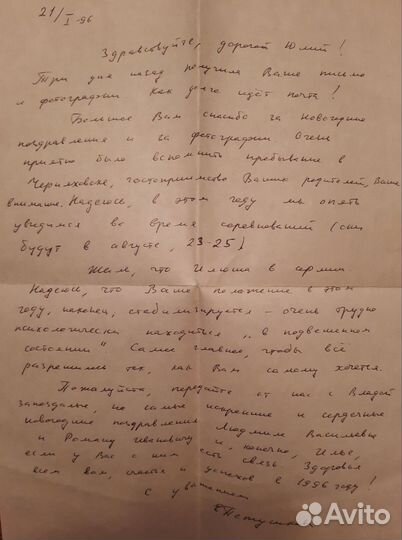 21/I-96
Здравствуйте, дорогой Юлий!
Три дня назад получила Ваше письмо
и фотографии. Как долго идёт почта!
Большое Вам спасибо за Новогодние
поздравления и за фотографии. Очень
приятно было вспомнить пребывание в
Черняховске, гостеприимство Ваших родителей, Ваше
внимание. Надеюсь, в этом году мы опять
увидимся во время соревнований (они
будут в августе, 23-25)
Жаль, что Илюша в армии.
Надеюсь, что Ваше положение в этом
году, наконец, стабилизируется - очень трудно
психологически находиться "в подвешенном
состоянии" Самое главное, чтобы всё
разрешилось так, как Вам самому хочется.
Пожалуйста, передайте от нас с Владой
запоздалые, но самые искренние и сердечные
новогодние поздравления Людмиле Васильевне
и Роману Ивановичу и, конечно, Илье,
если у Вас с ним есть связь. Здоровья
всем вам, счастья и успехов в 1996 году!
С уважением
Avito